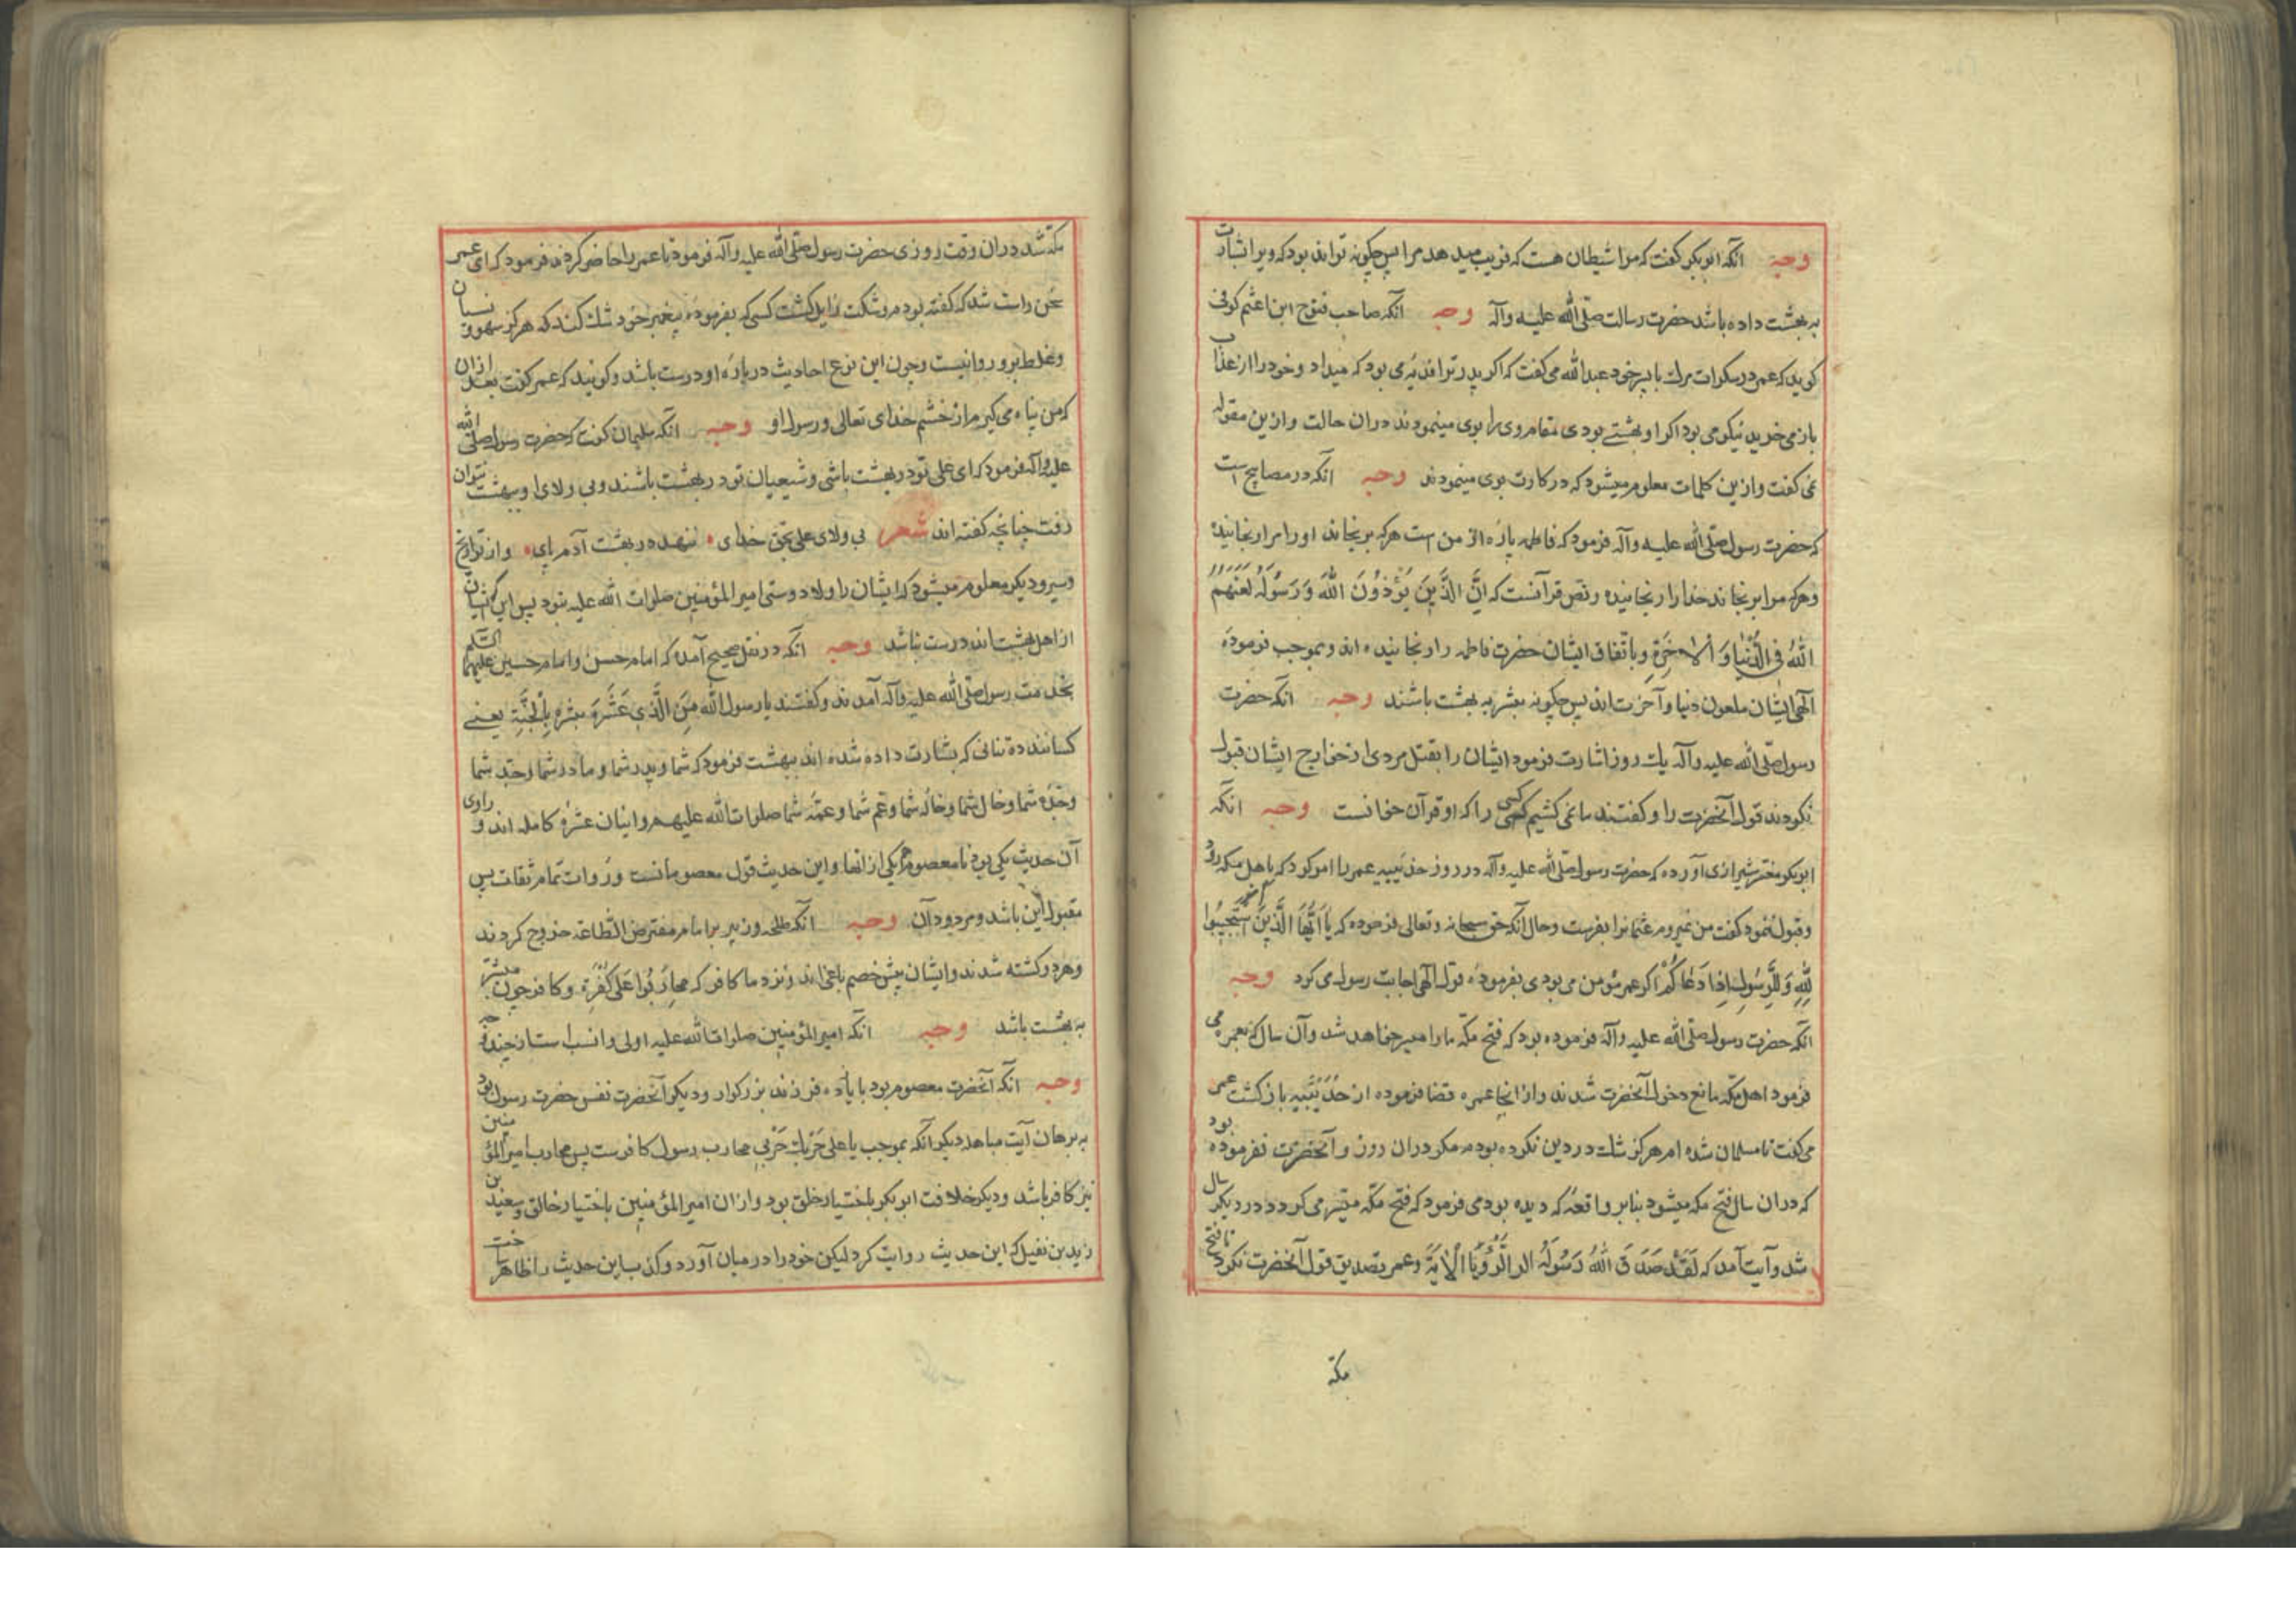 وجه انکه ابو بکر کفت که مرا شیطان هست که فریب میدهد مرا پس چکونه تواند بود که ویرا بشارت
به بهشت داده باشد حضرت رسالت صلّی الله علیه وآله وجه انکه صاحب فتوح ابن اعثم کوفی
کوید که عمر در سکرات مرک با پسر خود عبد الله می کفت که اکر پدر ترا بودی که میداد وخود را از عذاب
باز می خرید نیکو می بود اکر او بهشتی بودی مقام وی را بوی مینمودند دران حالت وازین مقوله
نمی کفت وازین کلمات معلوم میشود که درکارت بوی مینمودند وجه انکه در مصابیح است
که حضرت رسول صلّی الله علیه وآله فرمود که فاطمه پارهٔ از من است هرکه برنجاند اورا مرا رنجانیده
وهرکه مرا برنجاند خدا را رنجانیده ونص قرآنست که اِنَّ الَّذینَ یُؤْذُونَ اللهَ وَرَسُولَهُ لَعَنَهُمُ
اللهُ فِی الدُّنْیٰا وَالْاٰخِرَةِ وباتّفاق ایشان حضرت فاطمه را رنجانیده اند وبموجب فرمودهٔ
آلهی ایشان ملعون دنیا وآخرت اند پس چکونه مبشر به بهشت باشند وجه انکه حضرت
رسول صلّی الله علیه وآله یک روز اشارت فرمود ایشان را بقتل مردی از خوارج ایشان قبول
نکردند قول آنحضرت را وکفتند ما نمی کشیم کسی را که او قرآن خوانست وجه انکه
ابو بکر شیرازی آورده که حضرت رسول صلّی الله علیه وآله در روز حدیبیه عمر را امر کرد که باهل مکه رود
وقبول ننمود کفت من نمیروم عثمانرا بفرست وحال آنکه حق سبحانه وتعالی فرموده که یٰا اَیُّهَا الَّذینَ اٰمَنُوا اسْتَجیبُوا
لِلّٰهِ وَلِلرَّسُولِ اِذٰا دَعٰاکُمْ اکر عمر مؤمن می بودی بفرمودهٔ قول آلهی اجابت رسول می کرد وجه
انکه حضرت رسول صلّی الله علیه وآله فرموده بود که فتح مکّه ما را میسر خواهد شد وآن سال که بعمره می
فرمود اهل مکّه مانع دخول آنحضرت شدند واز انجا عمره قضا فرموده از حُدَیْبیه باز کشت عمر
می کفت تا مسلمان شده ام هرکز شک در دین نکرده بودم مکر دران روز وآنحضرت نفرموده بود
که دران سال فتح مکه میشود بنابر واقعهٔ که دیده بود می فرمود که فتح مکّه میسّر می کردد در دیکر سال
شد وآیت آمد که لَقَدْ صَدَقَ اللهُ رَسُولَهُ الرُّؤْیَا الْاٰیَةَ وعمر تصدیق قول آنحضرت نکرد تا فتح
مکّه
مکّه شد دران وقت روزی حضرت رسول صلّی الله علیه وآله فرمود تا عمر را حاضر کردند فرمود که ای عمر
سخن راست شد که کفته بودم وشکت زایل کشت کسی که بفرمودهٔ پیغمبر خود شک کند که هرکز سهو ونسیان
وغلط برو روا نیست وچون این نوع احادیث دربارهٔ او درست باشد وکویند که عمر کفت بعد ازان
که من پناه می کیرم از خشم خدای تعالی ورسول او وجه انکه سلیمان کفت که حضرت رسول صلّی الله
علیه وآله فرمود که ای علی تو در بهشت باشی وشیعیان تو در بهشت باشند وبی ولای او ببهشت نتوان
رفت چنانچه کفته اند شعر بی ولای علی بحق خدای ننهد در بهشت آدم پای واز تواریخ
وسیر ودیکر معلوم میشود که ایشان را ولا ودوستی امیر المؤمنین صلوات الله علیه نبود پس این که ایشان
از اهل بهشت اند درست نباشد وجه انکه در نقل صحیح آمده که امام حسن وامام حسین علیهما السّلم
بخدمت رسول صلّی الله علیه وآله آمدند وکفتند یا رسول الله مَنِ الَّذی عَشَرَة مبشره بِالْجَنَّةِ یعنی
کسانند ده تنانی که بشارت داده شده اند ببهشت فرمود که شما وپدر شما ومادر شما وجدّ شما
وجدّهٔ شما وخال شما وخالهٔ شما وعم شما وعمّهٔ شما صلوات الله علیهم واینان عشرهٔ کامله اند وراوی
آن حدیث یکی بود نامعصوم هم یکی از آنها واین حدیث قول معصومانست ورُوات تمام ثقات پس
مقبول این باشد ومردود آن وجه انکه طلحه وزبیر بر امام مفترض الطّاعة خروج کردند
وهردو کشته شدند وایشان پیش خصم باغی اند ونزد ما کافر که محارِبُوا عَلی کَفَرَة وکافر چون مبشّر
به بهشت باشد وجه انکه امیر المؤمنین صلوات الله علیه اولی وانسب است از چند وجه
وجه انکه آنحضرت معصوم بود با یازده فرزند بزرکوار ودیکر آنحضرت نفس حضرت رسول بود
به برهان آیت مباهله دیکر آنکه بموجب یا علی حَرْبُكَ حَرْبی محارب رسول کافرست پس محارب امیر المؤمنین
نیز کافر باشد ودیکر خلافت ابو بکر باختیار خلق بود وازان امیر المؤمنین باختیار خالق وسعید بن
زید بن نفیل که این حدیث روایت کرد لیکن خود را درمیان آورد وکذب این حدیث را ظاهر ساخت